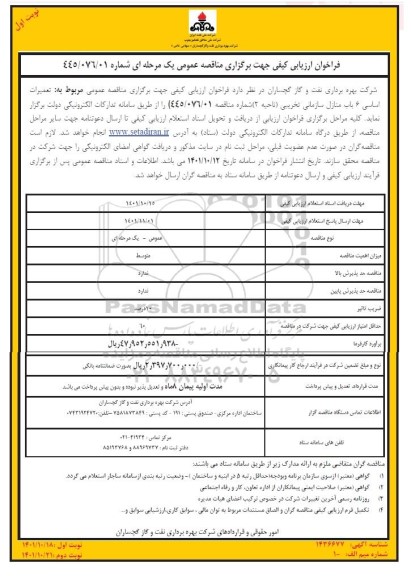 نوبت اول
فراخوان ارزیابی کیفی جهت برگزاری مناقصه عمومی یک مرحله ای شماره ۴۴۵/۰۷۶/۰۱
شرکت بهره برداری نفت و گاز گچساران در نظر دارد فراخوان ارزیابی کیفی جهت برگزاری مناقصه عمومی مربوط به: تعمیرات
اساسی ۶ باب منازل سازمانی تخریبی (ناحیه ۲)شماره مناقصه (۴۴۵/۰۷۶/۰۱) را از طریق سامانه تدارکات الکترونیکی دولت برگزار
نماید. کلیه مراحل برگزاری فراخوان ارزیابی از دریافت و تحویل اسناد استعلام ارزیابی کیفی تا ارسال دعوتنامه جهت سایر مراحل
مناقصه، از طریق درگاه سامانه تدارکات الکترونیکی دولت (ستاد) به آدرس www.setadiran.ir انجام خواهد شد. لازم است
مناقصه‌گران در صورت عدم عضویت قبلی، مراحل ثبت نام در سایت مذکور و دریافت گواهی امضای الکترونیکی را جهت شرکت در
مناقصه محقق سازند. تاریخ انتشار فراخوان در سامانه تاریخ ۱۴۰۱/۱۰/۱۲ می باشد. اطلاعات و اسناد مناقصه عمومی پس از برگزاری
فرآیند ارزیابی کیفی و ارسال دعوتنامه از طریق سامانه ستاد به مناقصه گران ارسال خواهد شد.
مهلت دریافت اسناد استعلام ارزیابی کیفی
مهلت ارسال پاسخ استعلام ارزیابی کیفی
نوع مناقصه عمومی - یک مرحله ای
میزان اهمیت مناقصه متوسط
مناقصه حد پذیرش بالا ندارد
مناقصه حد پذیرش پایین ندارد
ضریب تاثیر
حداقل امتیاز ارزیابی کیفی جهت شرکت در مناقصه
برآورد کارفرما ۴۷٫۹۵۲٫۵۵۱٫۹۳۸-ریال
نوع و مبلغ تضمین شرکت در فرآیند ارجاع کار پیمانکاری ۲٫۳۹۷٫۷۰۰٫۰۰۰ریال بصورت ضمانتنامه بانکی
مدت قرارداد، تعدیل و پیش پرداخت مدت اولیه پیمان ۸ماه و تعدیل پذیر نبوده و بدون پیش پرداخت می باشد
اطلاعات تماس دستگاه مناقصه گزار آدرس شرکت بهره برداری نفت و گاز گچساران
تلفن های سامانه ستاد مرکز تماس: ۴۱۹۳۴-۰۲۱
دفتر ثبت نام: ۸۸۹۶۹۷۳۷ و ۸۵۱۹۳۷۶۸
مناقصه گران متقاضی ملزم به ارائه مدارک زیر از طریق سامانه ستاد می باشند:
۱. گواهی (معتبر) ازسوی سازمان برنامه وبودجه(حداقل رتبه ۵ در ابنیه و ساختمان )-وضعیت رتبه بندی ازسامانه ساجار استعلام می گردد.
۲. گواهی (معتبر) صلاحیت ایمنی پیمانکاران از اداره تعاون، کار و رفاه اجتماعی
۳. روزنامه رسمی آخرین تغییرات شرکت در خصوص ترکیب اعضای هیات مدیره
۴. تکمیل فرم ارزیابی کیفی مناقصه گران و الصاق مستندات مربوط به توان مالی ، سوابق کاری،ارزشیابی سوابق و...
امور حقوقی و قراردادهای شرکت بهره برداری نفت و گاز گچساران
شناسه آگهی: ۱۴۳۶۶۷۷
شماره میم الف: ۱۰۰
نوبت اول: ۱۴۰۱/۱۰/۱۸
نوبت دوم: ۱۴۰۱/۱۰/۲۱
ParsNamadData